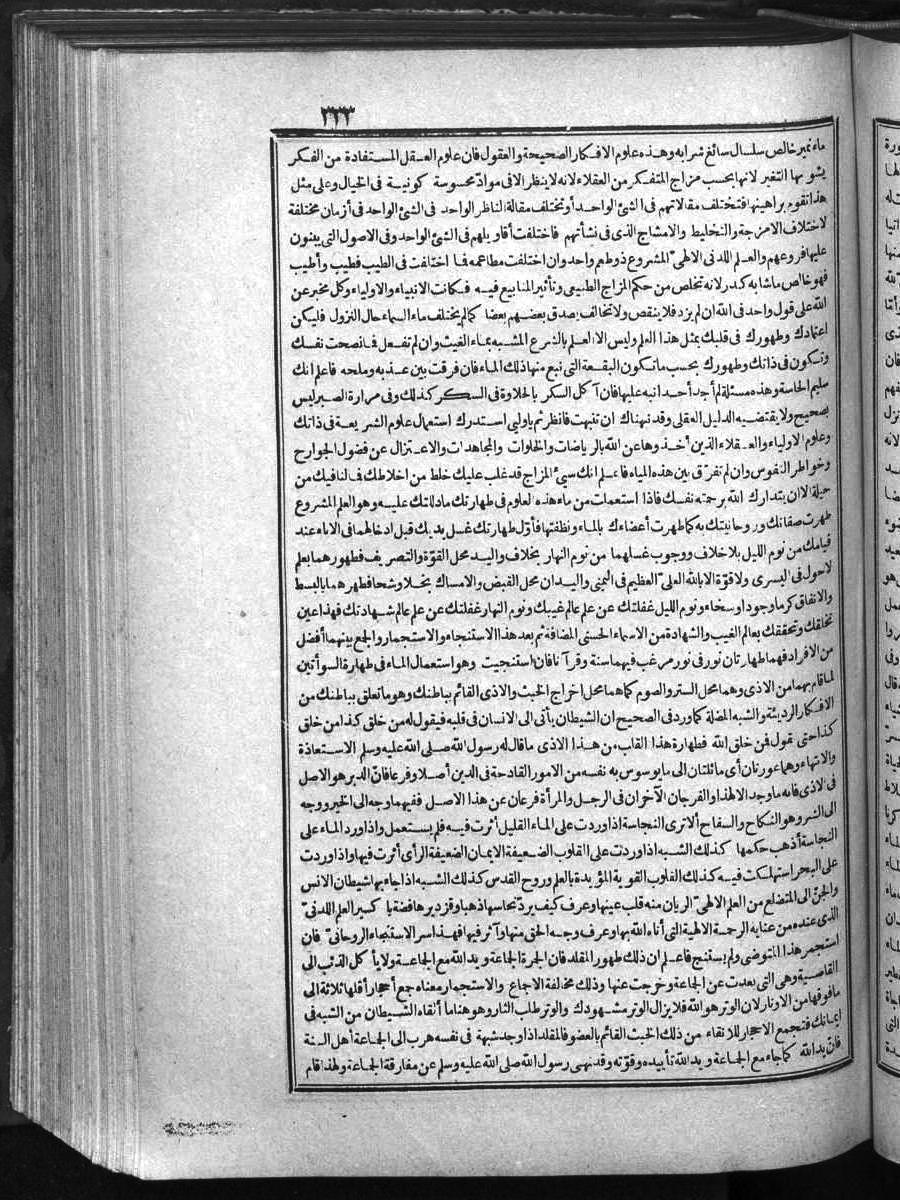 ٣٣٣
ماء نمير خالص سلسال سائغ شرابه وهذه علوم الافكار الصحيحة والعقول فان علوم العقل المستفادة من الفكر
يشوبها التغير لانها بحسب مزاج المتفكر من العقلاء لانه لا ينظر الا فى موادّ محسوسة كونية فى الخيال وعلى مثل
هذا تقوم براهينها فتختلف مقالاتهم فى الشئ الواحد أو تختلف مقالة الناظر الواحد فى الشئ الواحد فى أزمان مختلفة
لاختلاف الامزجة والتخليط والامشاج الذى فى نشأتهم فاختلفت أقاويلهم فى الشئ الواحد وفى الاصول التى يبنون
عليها فروعهم والعلم اللدنى الالهىّ المشروع ذو طعم واحد وان اختلفت مطاعمه فما اختلفت فى الطيب فطيب وأطيب
فهو خالص ما شابه كدر لانه تخلص من حكم المزاج الطبيعى وتأثير المنابيع فيه فكانت الانبياء والاولياء وكل مخبر عن
الله على قول واحد فى الله ان لم يزد فلا ينقص ولا تخالف يصدق بعضهم بعضا كما لم يختلف ماء السماء حال النزول فليكن
اعتمادك وطهورك فى قلبك بمثل هذا العلم وليس الا العلم بالشرع المشبه بماء الغيث وان لم تفعل فما نصحت نفسك
وتكون فى ذاتك وطهورك بحسب ما تكون البقعة التى نبع منها ذلك الماء فان فرقت بين عذبه وملحه فاعلم انك
سليم الحاسة وهذه مسئلة لم أجد أحدا نبه عليها فان آكل السكر بالحلاوة فى السكر كذلك وفى مرارة الصبر ليس
بصحيح ولا يقتضيه الدليل العقلى وقد نبهناك ان تنبهت فانظر ثم ياوليى استدرك استعمال علوم الشريعة فى ذاتك
وعلوم الاولياء والعقلاء الذين أخذوها عن الله بالرياضات والخلوات والمجاهدات والاعتزال عن فضول الجوارح
وخواطر النفوس وان لم تفرّق بين هذه المياه فاعلم انك سيئ المزاج قد غلب عليك خلط من اخلاطك فما لنا فيك من
حيلة الا ان يتدارك الله برحمته نفسك فاذا استعملت من ماء هذه العلوم فى طهارتك ما دللتك عليه وهو العلم المشروع
طهرت صفاتك وروحانيتك به كما طهرت أعضاءك بالماء ونظفتها فأوّل طهارتك غسل يديك قبل ادخالهما فى الاناء عند
قيامك من نوم الليل بلا خلاف ووجوب غسلهما من نوم النهار بخلاف واليد محل القوّة والتصريف فطهورهما بعلم
لا حول فى اليسرى ولا قوّة الا بالله العلىّ العظيم فى اليمنى واليدان محل القبض والامساك بخلا وشحا فطهرهما بالبسط
والانفاق كرما وجودا وسخاء ونوم الليل غفلتك عن علم عالم غيبك ونوم النهار غفلتك عن علم عالم شهادتك فهذا عين
تخلقك وتحققك بعالم الغيب والشهادة من الاسماء الحسنى المضافة ثم بعد هذا الاستنجاء والاستجمار والجمع بينهما أفضل
من الافراد فهما طهارتان نور فى نور مرغب فيهما سنة وقرآنا فان استنجيت وهو استعمال الماء فى طهارة السوأتين
لما قام بهما من الاذى وهما محل الستر والصوم كما هما محل اخراج الخبث والاذى القائم بباطنك وهو ما تعلق بباطنك من
الافكار الرديئة والشبه المضلة كما ورد فى الصحيح ان الشيطان يأتى الى الانسان فى قلبه فيقول له من خلق كذا من خلق
كذا حتى يقول فمن خلق الله فطهارة هذا القلب من هذا الاذى ما قال له رسول الله صلى الله عليه وسلم الاستعاذة
والانتهاء وهما عورتان أى مائلتان الى ما يوسوس به نفسه من الامور القادحة فى الدين أصلا وفرعا فانّ الدبر هو الاصل
فى الاذى فانه ما وجد الا لهذا والفرجان الآخران فى الرجل والمرأة فرعان عن هذا الاصل ففيهما وجه الى الخير ووجه
الى الشر وهو النكاح والسفاح ألا ترى النجاسة اذا وردت على الماء القليل أثرت فيه فلم يستعمل واذا ورد الماء على
النجاسة أذهب حكمها كذلك الشبه اذا وردت على القلوب الضعيفة الايمان الضعيفة الرأى أثرت فيها واذا وردت
على البحر استهلكت فيه كذلك القلوب القوية المؤيدة بالعلم وروح القدس كذلك الشبه اذا جاء بها شيطان الانس
والجنّ الى المتضلع من العلم الالهىّ الريان منه قلب عينها وعرف كيف يردّ نحاسها ذهبا وقزديرها فضة باكسير العلم اللدنىّ
الذى عنده من عناية الرحمة الالهية التى أتاه الله بها وعرف وجه الحق منها وآثر فيها فهذا سر الاستنجاء الروحانىّ فان
استجمر هذا المتوضى ولم يستنج فاعلم ان ذلك طهور المقلد فان الجمرة الجماعة ويد الله مع الجماعة ولا يأكل الذئب الى
القاصية وهى التى بعدت عن الجماعة وخرجت عنها وذلك مخالفة الاجماع والاستجمار معناه جمع أحجار أقلها ثلاثة الى
ما فوقها من الاوتار لان الوتر هو الله فلا يزال الوتر مشهودك والوتر طلب الثار وهو هنا ما ألقاه الشيطان من الشبه فى
ايمانك فتجمع الاحجار للانقاء من ذلك الخبث القائم بالعضو فالمقلد اذا وجد شبهة فى نفسه هرب الى الجماعة أهل السنة
فانّ يد الله كما جاء مع الجماعة ويد الله تأييده وقوّته وقد نهى رسول الله صلى الله عليه وسلم عن مفارقة الجماعة ولهذا قام